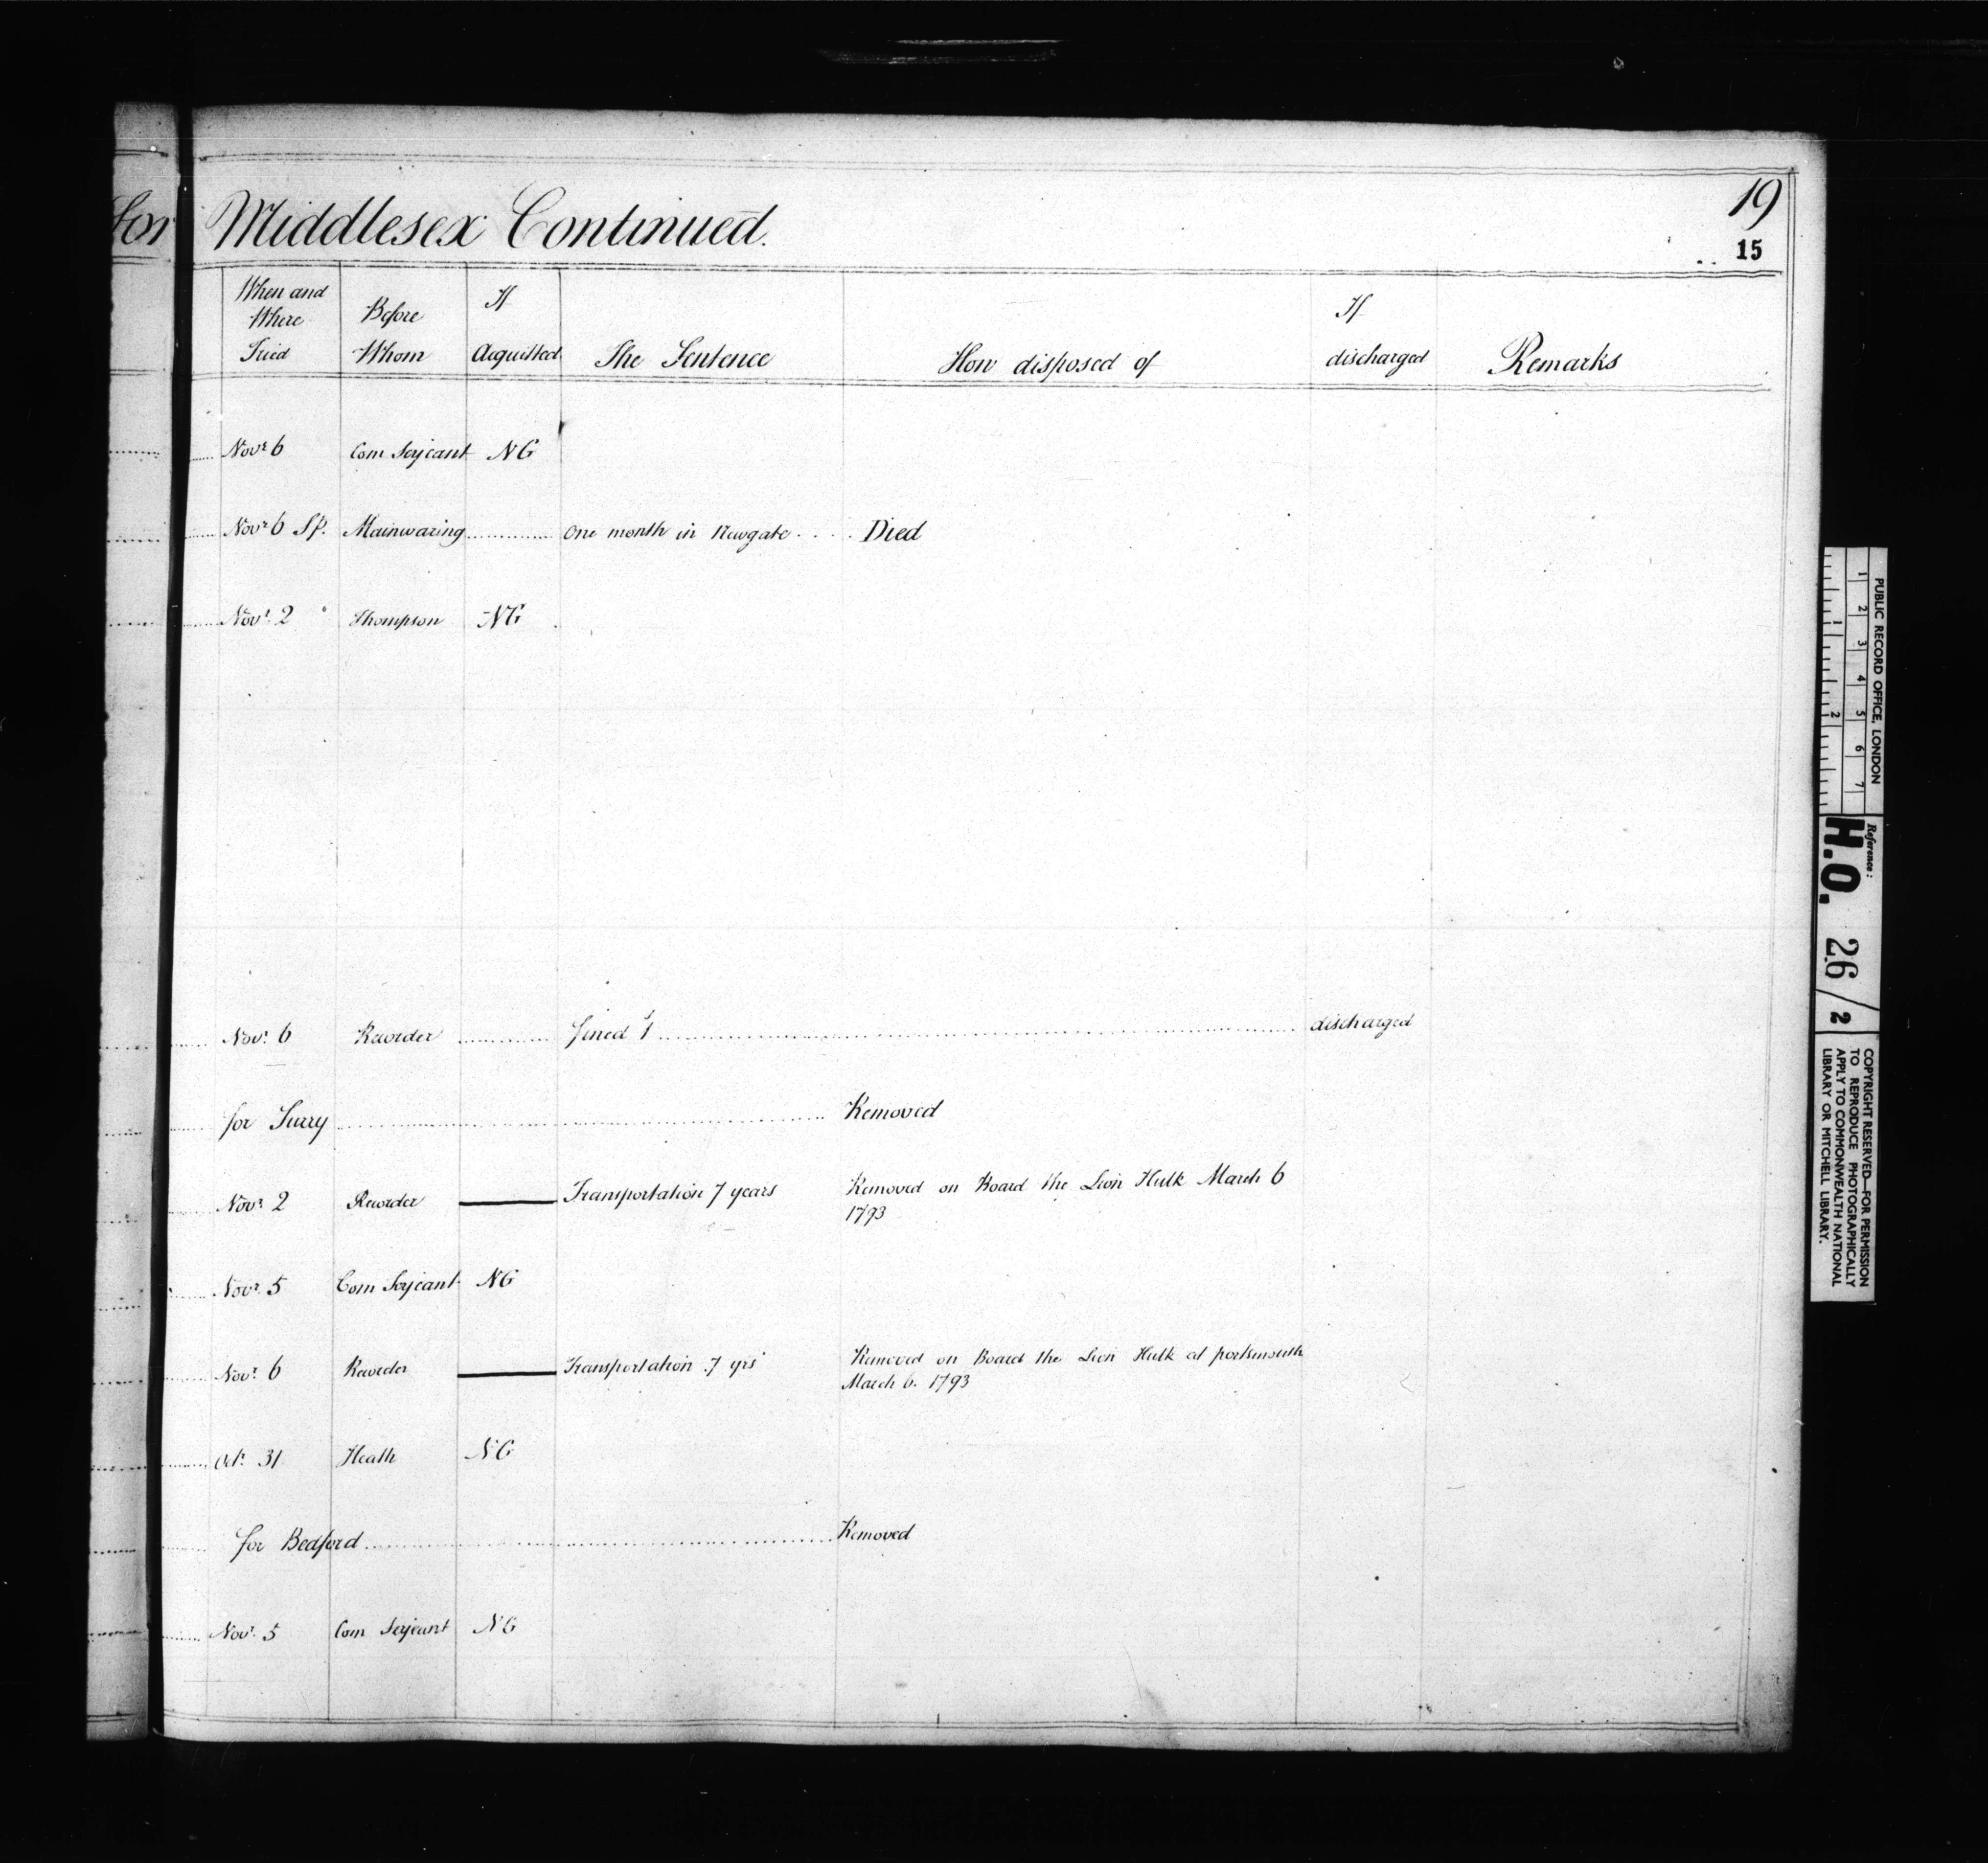 for
Middlesex Continued.
19
15
When and Where Tried
Before Whom
If Acquitted
The Sentence
How disposed of
If discharged
Remarks
Novr 6 Com Serjeant NG
Novr 6 Sp. Mainwaring One month in Newgate Died
Novr 2 Thompson NG
Novr 6 Recorder fined 1s discharged
for Surry Removed
Novr 2 Recorder Transportation 7 years Removed on Board the Lion Hulk March 6
1793
Novr 5 Com Serjeant NG
Novr 6 Recorder Transportation 7 yrs Removed on Board the Lion Hulk at portsmouth
March 6. 1793
Octr 31 Heath NG
for Bedford Removed
Novr 5 Com Serjeant NG
PUBLIC RECORD OFFICE, LONDON
1 2 3 4 5 6 7
1 2
Reference:
H.O. 26/2
COPYRIGHT RESERVED—FOR PERMISSION
TO REPRODUCE PHOTOGRAPHICALLY
APPLY TO COMMONWEALTH NATIONAL
LIBRARY OR MITCHELL LIBRARY.